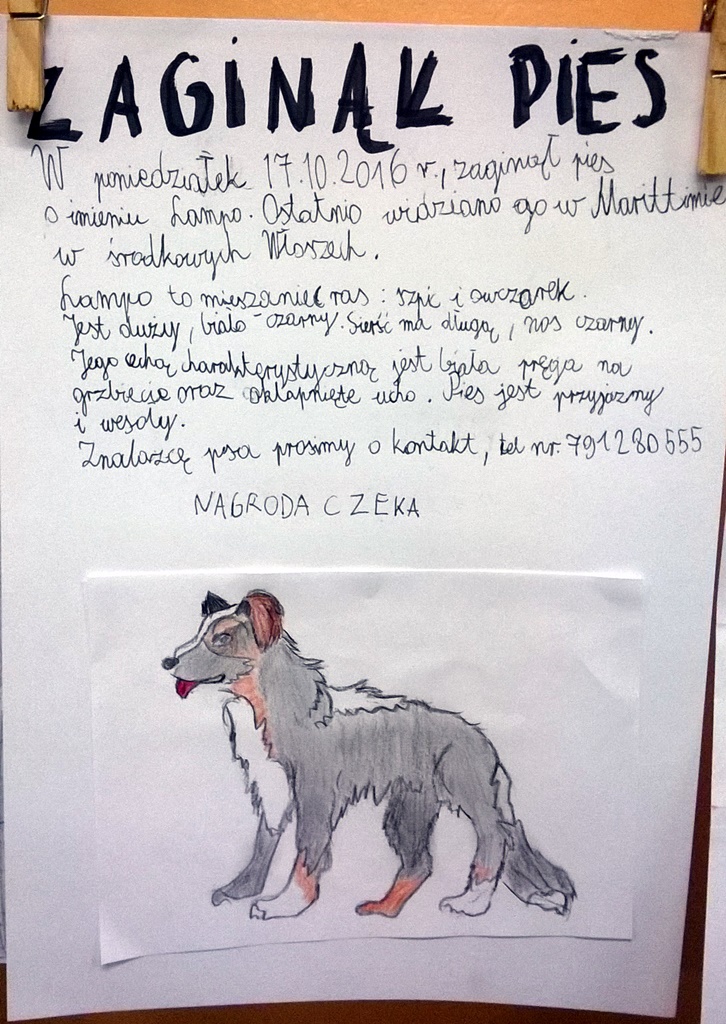 ZAGINĄŁ PIES
W poniedziałek 17.10.2016 r., zaginął pies
o imieniu Lampo. Ostatnio widziano go w Marittimie
w środkowych Włoszech.
Lampo to mieszaniec ras: szpic i owczarek.
Jest duży, biało-czarny. Sierść ma długą, nos czarny.
Jego cechą charakterystyczną jest biała pręga na
grzbiecie oraz oklapnięte ucho. Pies jest przyjazny
i wesoły.
Znalazcę psa prosimy o kontakt, tel nr. 791280555
NAGRODA CZEKA